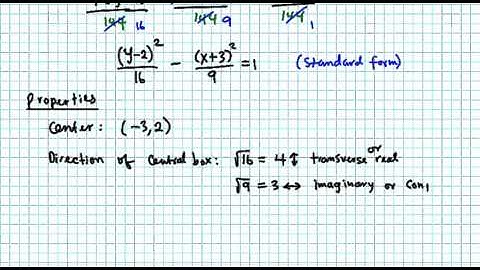 144 16 144 9 144 1
(y-2)² / 16 - (x+3)² / 9 = 1 (standard form)
Properties
Center: (-3,2)
Direction of central box: √16 = 4 ↕ transverse or real
√9 = 3 ↔ imaginary or conj